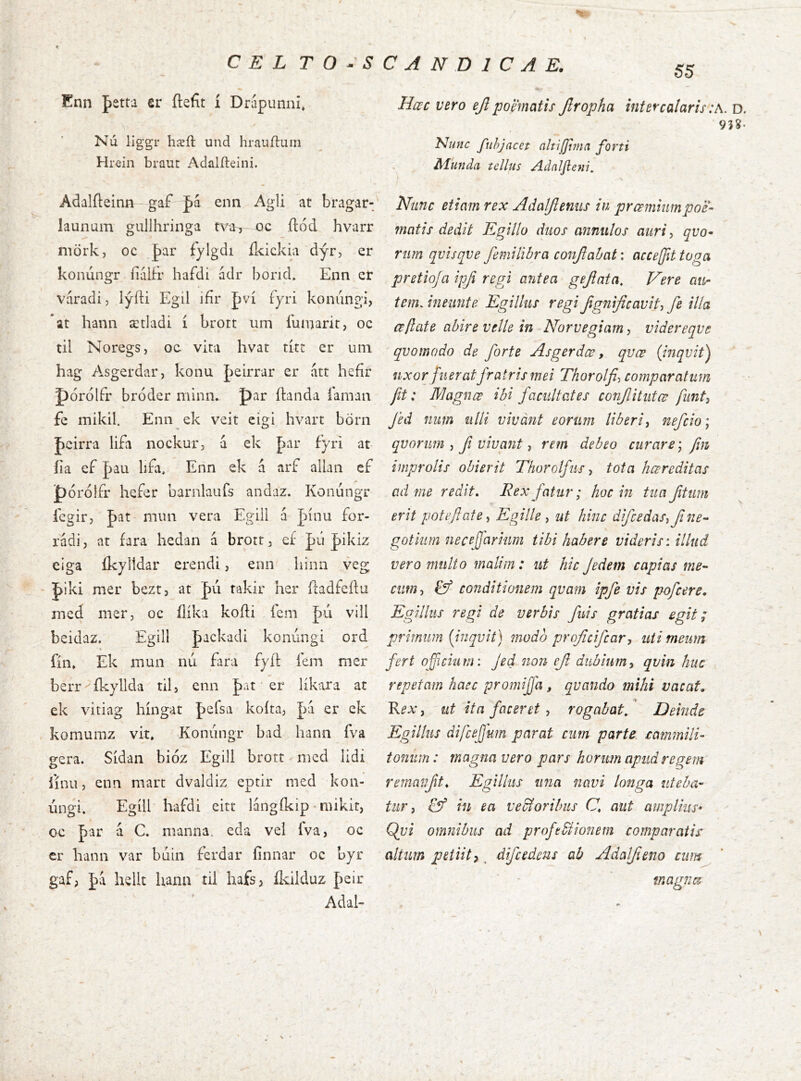 CELTO-SCANDICAE.
55
Enn þetta er ſtefit í Drápunni.
Nú liggr hæſt und hrauſtum
Hrein braut Adalſteini.
Adalſteinn gaf þá enn Agli at bragar-
launum gullhringa tva, oc ſtód hvarr
mörk, oc þar fylgdi ſkickia dýr, er
konúngr ſiálfr hafdi ádr borid. Enn er
váradi, lýſti Egil ifir því fyri konúngi,
at hann ætladi í brott um ſumarit, oc
til Noregs, oc vita hvat títt er um
hag Asgerdar, konu þeirrar er átt hefir
Þórólfr bróder minn. Þar ſtanda ſaman
fe mikil. Enn ek veit eigi hvart börn
þeirra lifa nockur, á ek þar fyri at
ſia ef þau lifa. Enn ek á arf allan ef
Þórólfr hefer barnlauſs andaz. Konúngr
ſegir, þat mun vera Egill á þínu for-
rádi, at fara hedan á brott, ef þú þikiz
eiga ſkylldar erendi, enn hinn veg
þiki mer bezt, at þú takir her ſtadfeſtu
med mer, oc ſlíka koſti ſem þú vill
beidaz. Egill þackadi konúngi ord
ſín. Ek mun nú fara fyſt ſem mer
berr ſkyllda til, enn þat er líkara at
ek vitiag híngat þeſsa koſta, þá er ek
komumz vit. Konúngr bad hann ſva
gera. Sídan bióz Egill brott med lidi
ſínu, enn mart dvaldiz eptir med kon-
úngi. Egill hafdi eitt lángſkip mikit,
oc þar á C. manna. eda vel ſva, oc
er hann var búin ferdar ſinnar oc byr
gaf, þá hellt hann til hafs, ſkilduz þeir
Adal-
Hæc vero eſt poëmatis ſtropha intercalaris:
A. D.
938.
Nunc ſubjacet altiſſima forti
Munda tellus Adalſteni.
Nunc etiam rex Adalſtenus in præmium poë-
matis dedit Egillo duos annulos auri, qvo-
rum qvisqve ſemilibra conſtabat: acceſſit toga
pretioſa ipſi regi antea geſtata. Vere au-
tem, ineunte Egillus regi ſignificavit, ſe illa
æſtate abire velle in Norvegiam, videreqve
qvomodo de ſorte Asgerdæ, qvæ (inqvit)
uxor fuerat fratris mei Thorolfi, comparatum
ſit: Magnæ ibi facultates conſtitutæ ſunt,
ſed num ulli vivant eorum liberi, neſcio;
qvorum, ſi vivant, rem debeo curare; ſin
improlis obierit Thorolfus, tota hæreditas
ad me redit. Rex fatur; hoc in tua ſitum
erit poteſtate, Egille, ut hinc diſcedas, ſi ne-
gotium neceſſarium tibi habere videris: illud
vero multo malim: ut hic ſedem capias me-
cum, & conditionem qvam ipſe vis poſcere.
Egillus regi de verbis ſuis gratias egit;
primum (inqvit) modò proficiſcar, uti meum
fert officium: ſed non eſt dubium, qvin huc
repetam haec promiſſa, qvando mihi vacat.
Rex, ut ita faceret, rogabat. Deinde
Egillus diſceſſum parat cum parte commili-
tonum: magna vero pars horum apud regem
remanſit. Egillus una navi longa uteba-
tur, & in ea vectoribus C, aut amplius.
Qvi omnibus ad profectionem comparatis
altum petiit, diſcedens ab Adalſteno cum
magna